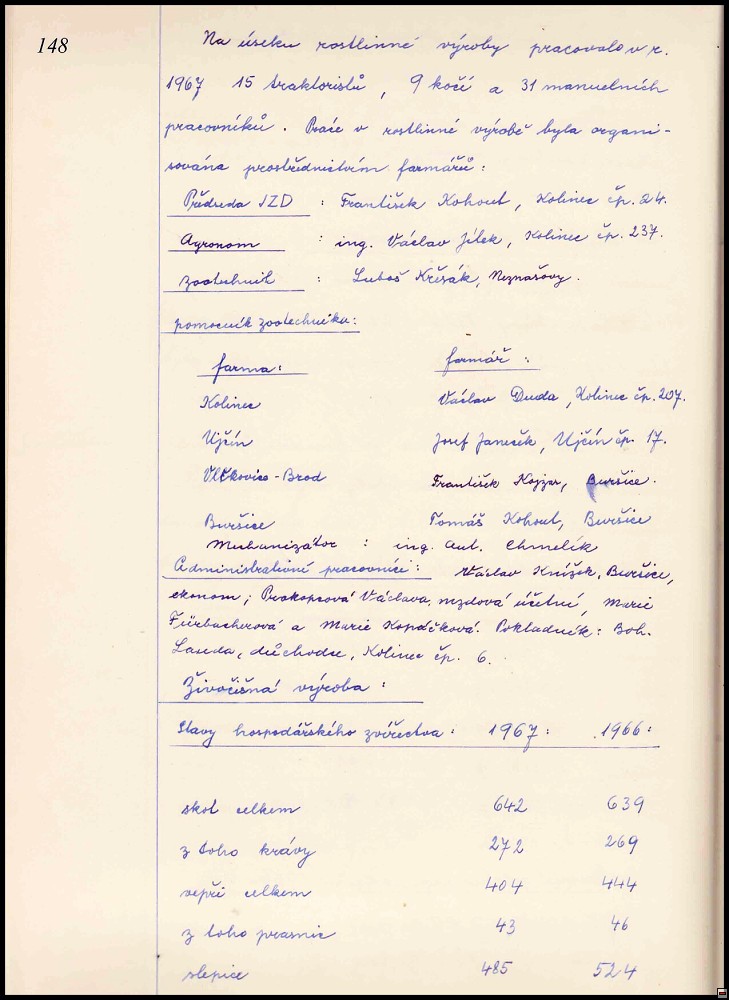 148
Na úseku rostlinné výroby pracovalo v r.
1967 15 traktoristů, 9 kočí a 31 manuelních
pracovníků. Práce v rostlinné výrobě byla organi-
sována prostřednictvím farmářů:
Předseda JZD : František Kohout, Kolinec čp. 24.
Agronom : ing. Václav Jílek, Kolinec čp. 237.
zootechnik : Luboš Křesák, Neznašovy.
pomocník zootechnika:
farma: farmář:
Kolinec Václav Duda, Kolinec čp. 207.
Ujčín Josef Janeček, Ujčín čp. 17.
Vlčkovice-Brod František Kojzar, Buršice.
Buršice Tomáš Kohout, Buršice
Mechanizátor : ing. Ant. Chmelík
Administrativní pracovníci: Václav Knížek, Buršice,
ekonom; Prokopcová Václava, mzdová účetní, Marie
Fürbacherová a Marie Kopáčková. Pokladník: Boh.
Lasda, důchodce, Kolinec čp. 6.
Živočišná výroba:
Stavy hospodářského zvířectva: 1967: 1966:
skot celkem 642 639
z toho krávy 272 269
vepři celkem 404 444
z toho prasnic 43 46
slepice 485 524